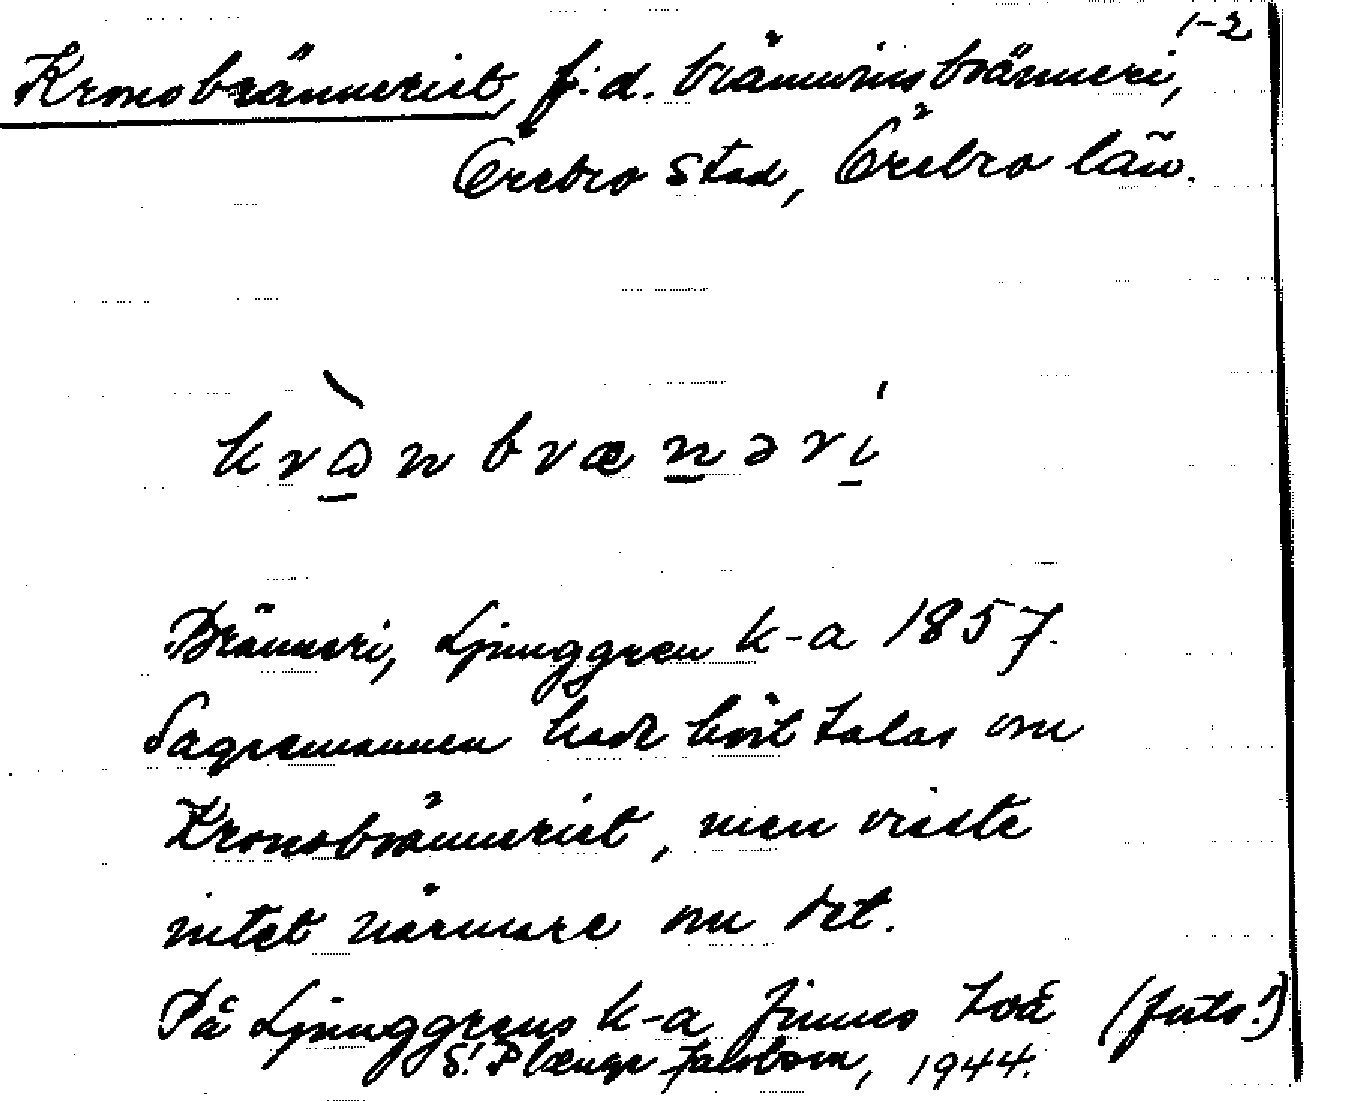 1-2
Kronobränneriet, f.d. brännvinsbränneri,
Örebro stad, Örebro län.
krɷ̀n brænəri
Bränneri, Ljunggren k-a 1857.
Sagesmannen hade hört talas om
Kronobränneriet, men visste
intet närmare om det.
På Ljunggrens k-a finnes två (forts!)
S. Plænge Jacobson, 1944.